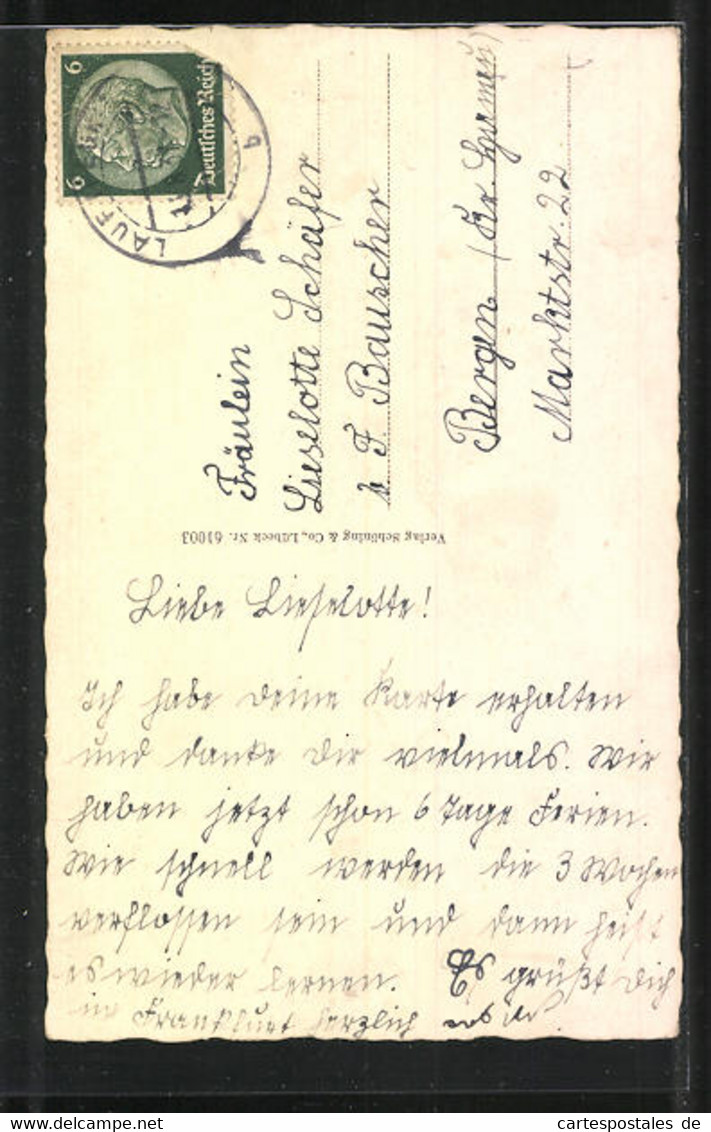 6 6
Deutsches Reich
LAUF
b
Fräulein
Lieselotte Schäfer
b F. Bauscher
Bergen (Kr. Hanau)
Marktstr. 22
Verlag Schöning & Co., Lübeck Nr. 61003
Liebe Lieselotte!
Ich habe deine Karte erhalten
und danke dir vielmals. Wir
haben jetzt schon 6 Tage Ferien.
Wie schnell werden die 3 Wochen
verflossen sein und dann heist
es wieder lernen. Es grüßt Dich
in Frankfurt herzlich
www.delcampe.net
cartespostales de